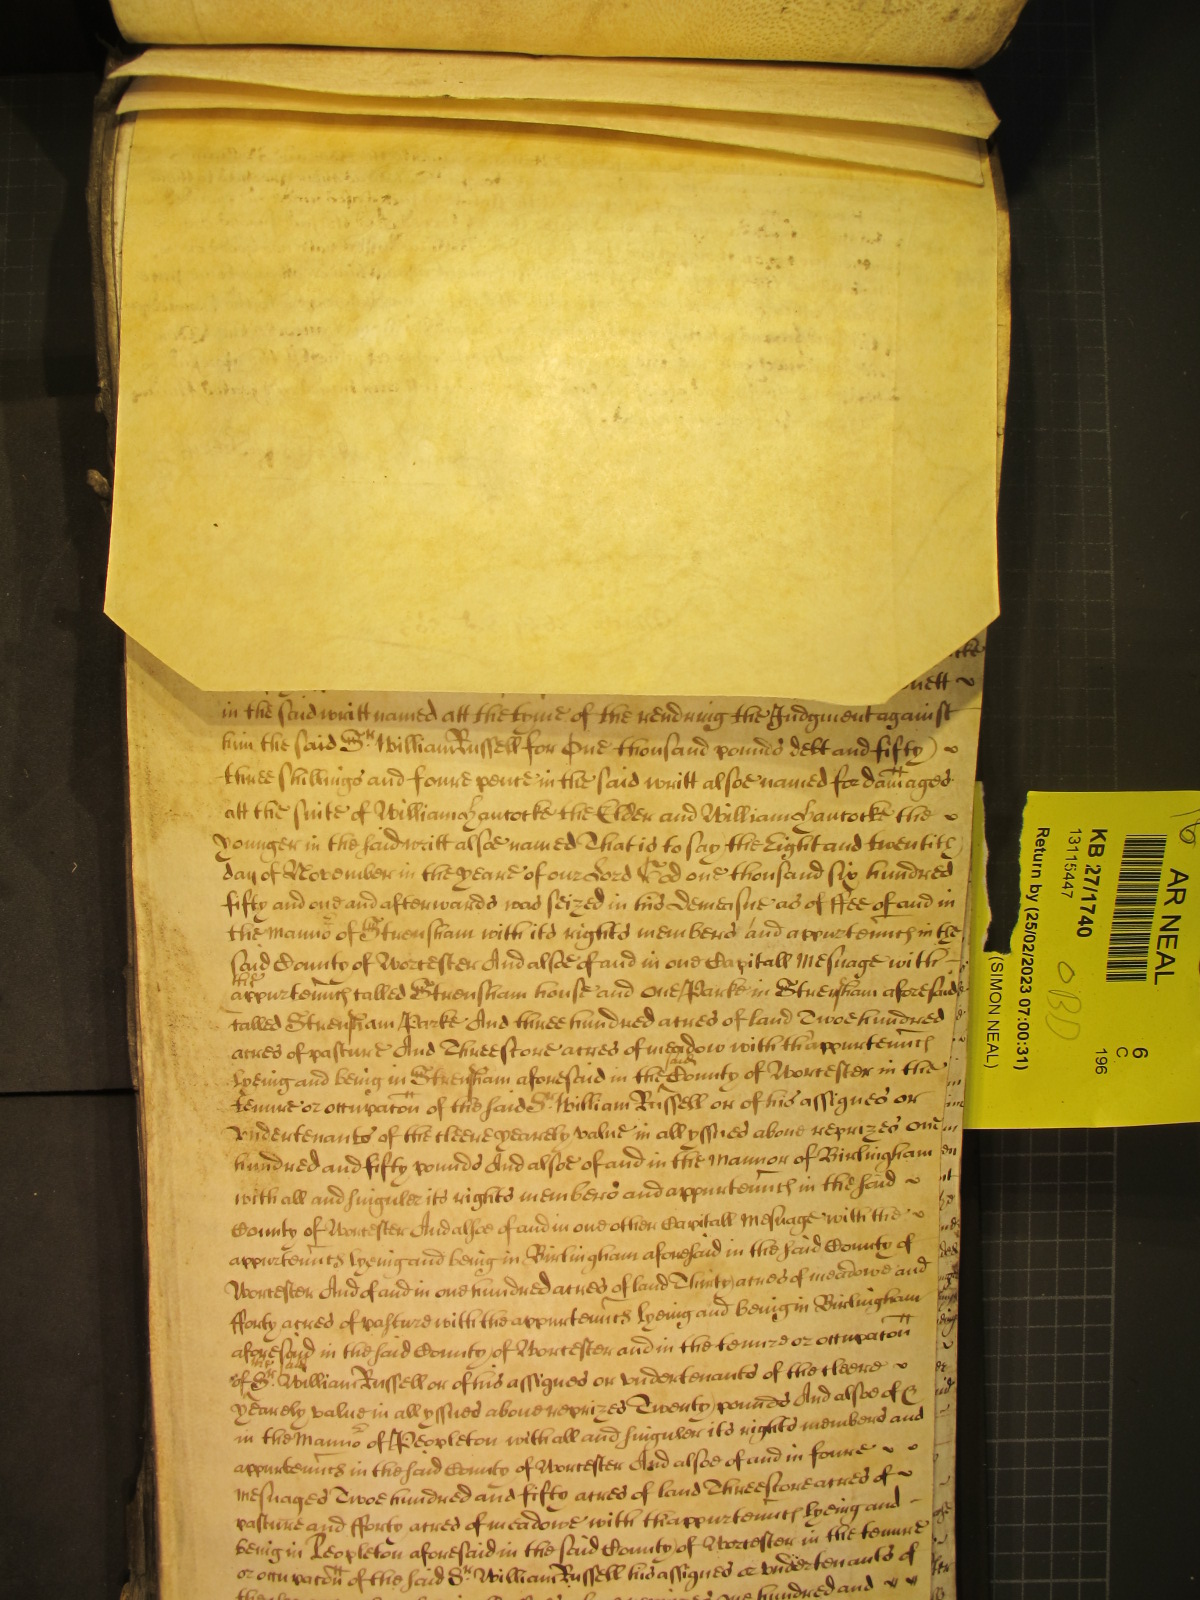 in the said writt named att the tyme of the rendring the Judgment against
him the said Sr. William Russell for One thousand pounds debt and fifty
three shillings and foure pence in the said writt alsoe named for damages
att the suite of William Hancocke the Elder and William Hancocke the
younger in the said writt alsoe named That is to say the Eight and twentith
day of November in the yeare of our Lord God one thousand six hundred
fifty and one and afterwards was seized in his demeasne as of ffee of and in
the Manno of Strensham with its rights members and appurtennc in the
said County of Worcester And alsoe of and in one Capitall Mesuage with
the
appurtennc called Strensham house and one Parke in Strensham aforesaid
called Strensham Parke And three hundred acres of land Twoe hundred
acres of pasture And Threescore acres of meadow with thappurtennc
lyeing and being in Strensham aforesaid in the said County of Worcester in the
tenure or occupacon of the said Sr. William Russell or of his assignes or
undertenants of the cleere yearely value in all yssues above reprizes one
hundred and fifty pounds And alsoe of and in the Mannor of Birlingham
with all and singuler its rights members and appurtennc in the said
County of Worcester And alsoe of and in one other Capitall Mesuage with the
appurtennc lyeing and being in Birlingham aforesaid in the said County of
Worcester And of and in one hundred acres of land Thirty acres of meadowe and
fforty acres of pasture with the appurtennc lyeing and being in Birlingham
aforesaid in the said County of Worcester and in the tenure or occupacon
of the said Sr. William Russell or of his assignes or undertenants of the cleere
yearely value in all yssues above reprizes Twenty pounds And alsoe of &
in the Manno of Peopleton with all and singuler its rights members and
appurtennc in the said County of Worcester And alsoe of and in foure
Mesuages Twoe hundred and fifty acres of land Threescore acres of
pasture and fforty acres of meadowe with thappurtennc lyeing and
being in Peopleton aforesaid in the said County of Worcester in the tenure
or occupacon of the said Sr. William Russell his assignes or undertenants of
one hundred and
AR NEAL
KB 27/1740
13115447
6
C
196
Return by (25/02/2023 07:00:31)
(SIMON NEAL)